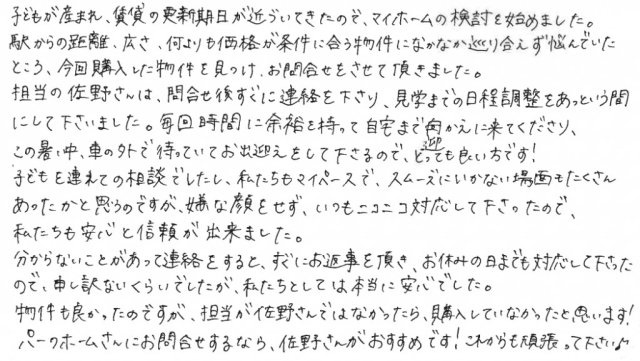 子どもが産まれ、賃貸の更新期日が近づいてきたので、マイホームの検討を始めました。
駅からの距離、広さ、何よりも価格が条件に合う物件になかなか巡り合えず悩んでいた
ところ、今回購入した物件を見つけ、お問合せをさせて頂きました。
担当の佐野さんは、問合せ後すぐに連絡を下さり、見学までの日程調整をあっという間
にして下さいました。毎回時間に余裕を持って自宅まで向かえに来てくださり、
迎
この暑い中、車の外で待っていてお出迎えをして下さるので、とっても良い方です!
子どもを連れての相談でしたし、私たちもマイペースで、スムーズにいかない場面もたくさん
あったかと思うのですが、嫌な顔をせず、いつもニコニコ対応して下さったので、
私たちも安心と信頼が出来ました。
分からないことがあって連絡をすると、すぐにお返事を頂き、お休みの日までも対応して下さった
ので、申し訳ないくらいでしたが、私たちとしては本当に安心でした。
物件も良かったのですが、担当が佐野さんではなかったら、購入していなかったと思います!
パークホームさんにお問合せするなら、佐野さんがおすすめです!これからも頑張って下さい♪